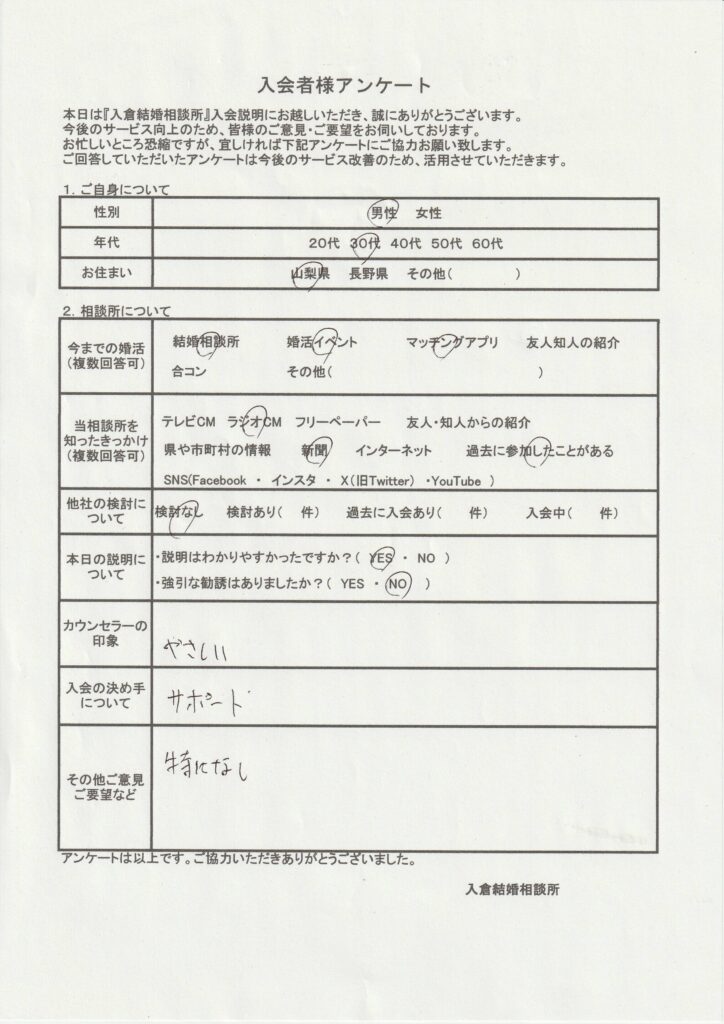 入会者様アンケート
本日は『入倉結婚相談所』入会説明にお越しいただき、誠にありがとうございます。
今後のサービス向上のため、皆様のご意見・ご要望をお伺いしております。
お忙しいところ恐縮ですが、宜しければ下記アンケートにご協力お願い致します。
ご回答していただいたアンケートは今後のサービス改善のため、活用させていただきます。
1. ご自身について
性別 男性 女性
年代 20代 30代 40代 50代 60代
お住まい 山梨県 長野県 その他( )
2. 相談所について
今までの婚活
(複数回答可)
結婚相談所 婚活イベント マッチングアプリ 友人知人の紹介
合コン その他( )
当相談所を
知ったきっかけ
(複数回答可)
テレビCM ラジオCM フリーペーパー 友人・知人からの紹介
県や市町村の情報 新聞 インターネット 過去に参加したことがある
SNS(Facebook ・ インスタ ・ X(旧Twitter) ・YouTube )
他社の検討に
ついて
検討なし 検討あり( 件) 過去に入会あり( 件) 入会中( 件)
本日の説明に
ついて
・説明はわかりやすかったですか?( YES ・ NO )
・強引な勧誘はありましたか?( YES ・ NO )
カウンセラーの
印象
やさしい
入会の決め手
について
サポート
その他ご意見
ご要望など
特になし
アンケートは以上です。ご協力いただきありがとうございました。
入倉結婚相談所